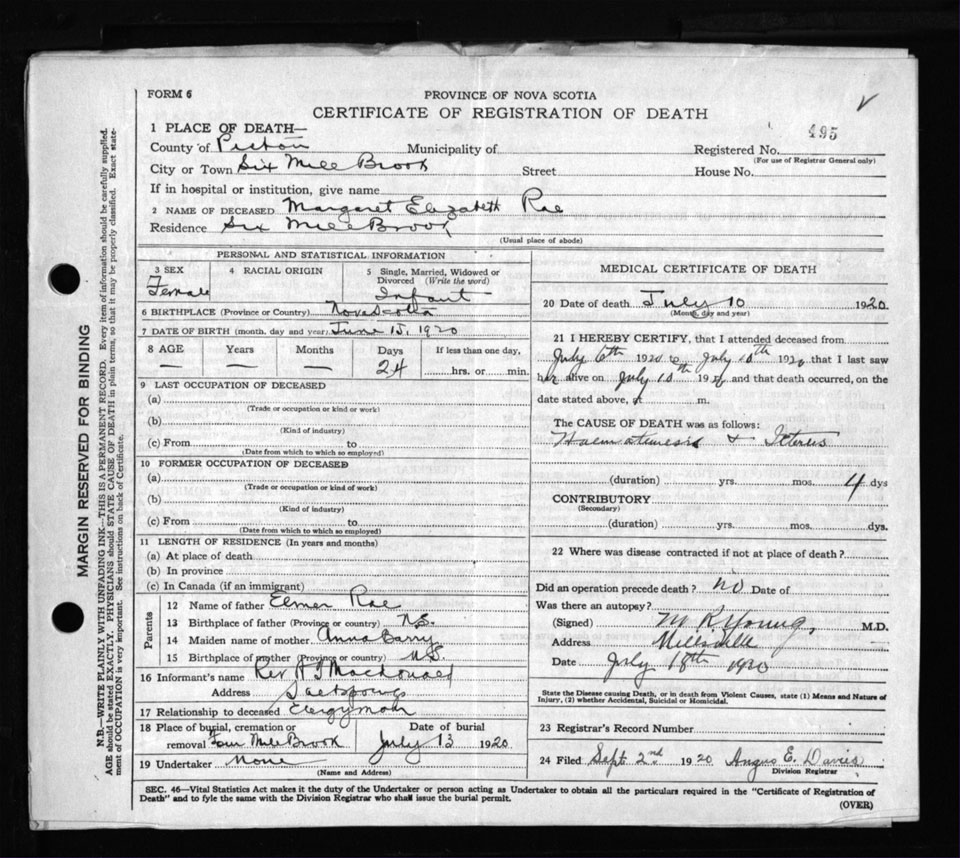 FORM 6
PROVINCE OF NOVA SCOTIA
CERTIFICATE OF REGISTRATION OF DEATH
1 PLACE OF DEATH—
495
County of Pictou Municipality of Registered No.
(For use of Registrar General only)
City or Town Six Mile Brook Street House No.
If in hospital or institution, give name
2 NAME OF DECEASED Margaret Elizabeth Rae
Residence Six Mile Brook
(Usual place of abode)
PERSONAL AND STATISTICAL INFORMATION
3 SEX 4 RACIAL ORIGIN 5 Single, Married, Widowed or Divorced (Write the word)
Female Infant
6 BIRTHPLACE (Province or Country) Nova Scotia
7 DATE OF BIRTH (month, day and year) June 15, 1920
8 AGE Years Months Days If less than one day,
— — — 24 hrs. or min.
9 LAST OCCUPATION OF DECEASED
(a)
(Trade or occupation or kind or work)
(b)
(Kind of industry)
(c) From to
(Date from which to which so employed)
10 FORMER OCCUPATION OF DECEASED
(a)
(Trade or occupation or kind of work)
(b)
(Kind of industry)
(c) From to
(Date from which to which so employed)
11 LENGTH OF RESIDENCE (In years and months)
(a) At place of death
(b) In province
(c) In Canada (if an immigrant)
Parents
12 Name of father Elmer Rae
13 Birthplace of father (Province or country) N.S.
14 Maiden name of mother Anna Barry
15 Birthplace of mother (Province or country) N.S.
16 Informant's name Rev. Macdonald
Address Saltsprings
17 Relationship to deceased Clergyman
18 Place of burial, cremation or Date of burial
removal Four Mile Brook July 13 1920
19 Undertaker None
(Name and Address)
MEDICAL CERTIFICATE OF DEATH
20 Date of death July 10 1920
(Month, day and year)
21 I HEREBY CERTIFY, that I attended deceased from
July 6th 1920 to July 10th 1920 that I last saw
her alive on July 10th 1920 and that death occurred, on the
date stated above, at m.
The CAUSE OF DEATH was as follows:
Haematemesis & Icterus
(duration) yrs. mos. 4 dys
CONTRIBUTORY
(Secondary)
(duration) yrs. mos. dys.
22 Where was disease contracted if not at place of death?
Did an operation precede death? No Date of
Was there an autopsy?
(Signed) M R Young, M.D.
Address Millsville
Date July 18th 1920
State the Disease causing Death, or in death from Violent Causes, state (1) Means and Nature of
Injury, (2) whether Accidental, Suicidal or Homicidal.
23 Registrar's Record Number
24 Filed Sept 2nd 1920 Angus E. Davies
Division Registrar
SEC. 46—Vital Statistics Act makes it the duty of the Undertaker or person acting as Undertaker to obtain all the particulars required in the "Certificate of Registration of
Death" and to fyle the same with the Division Registrar who shall issue the burial permit.
(OVER)
MARGIN RESERVED FOR BINDING
N.B.—WRITE PLAINLY WITH UNFADING INK—THIS IS A PERMANENT RECORD. Every item of information should be carefully supplied.
AGE should be stated EXACTLY. PHYSICIANS should STATE CAUSE OF DEATH in plain terms, so that it may be properly classified. Exact state-
ment of OCCUPATION is very important. See instructions on back of Certificate.